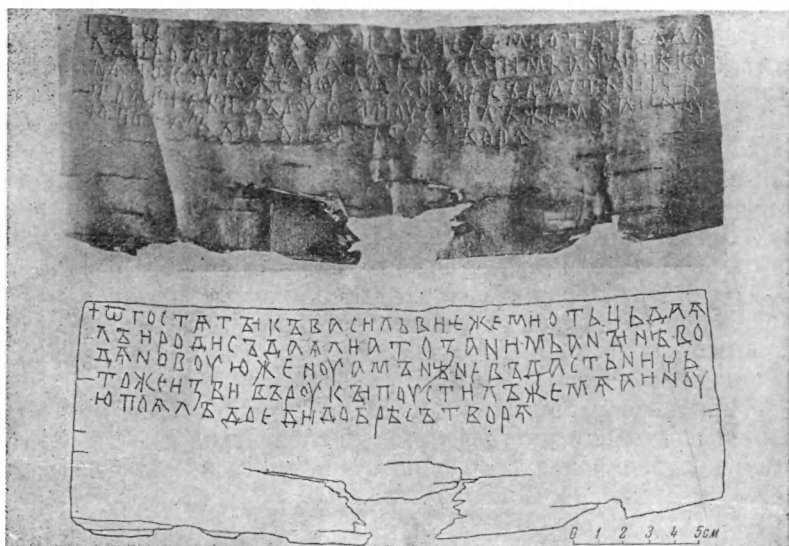 +ѿгостѧтъікъвасильвиѥжемиотьцьдаѧ
лъиродисъдаѧлиатозанимьанъінѣво
дѧновоуюженоуамънѣневъдастьничь
тожеизбивъроукъіпоустилъжемѧаиноу
юпоѧлъдоедидобрѣсътворѧ
0 1 2 3 4 5см